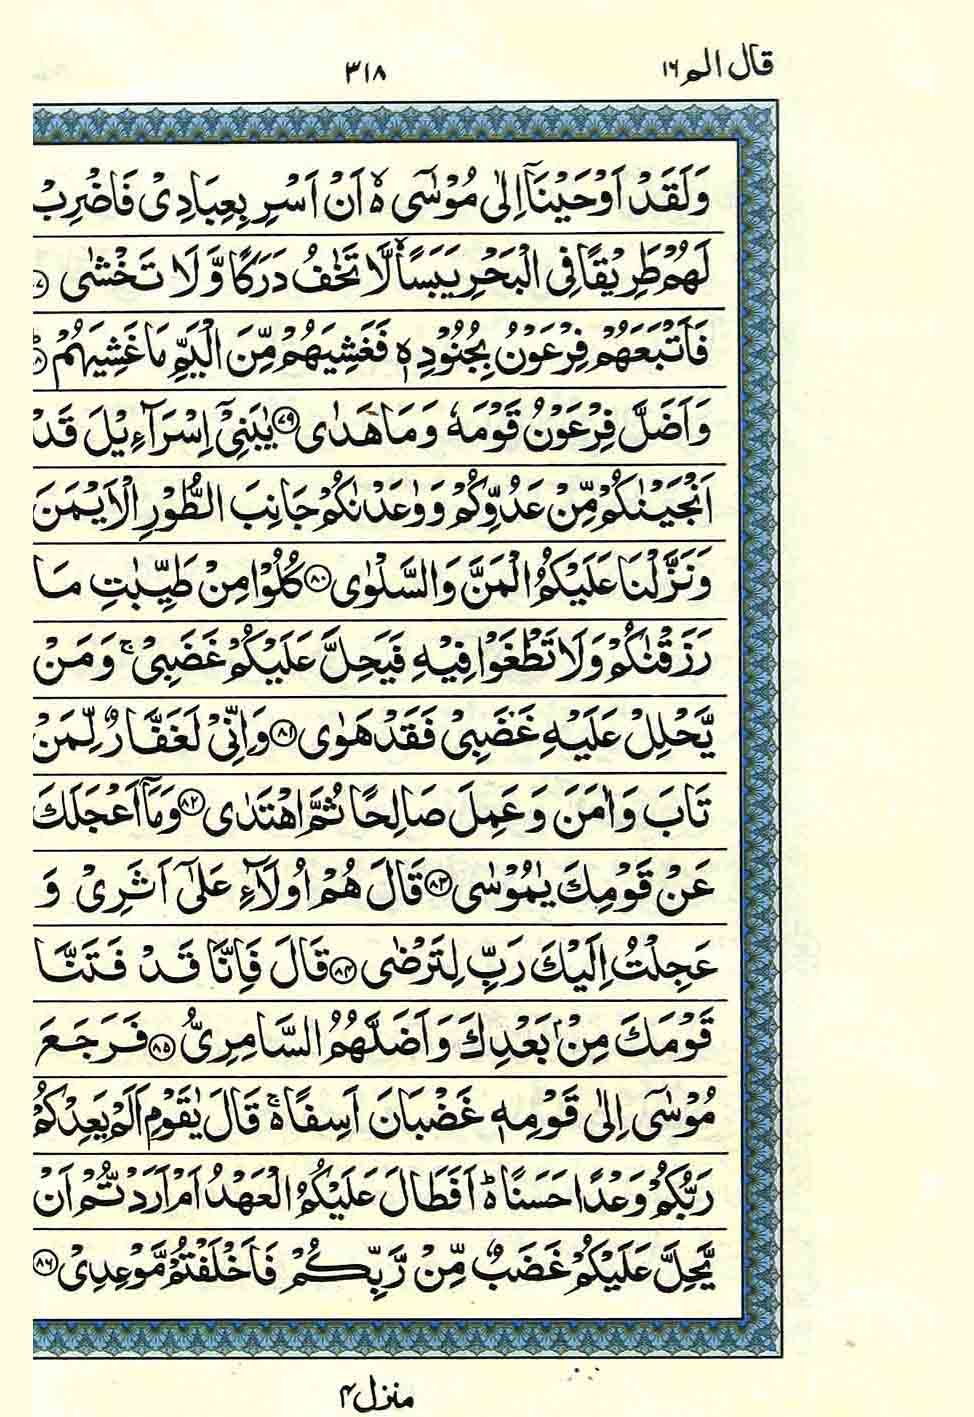 قال الم ١٦
٣١٨
وَلَقَدْ اَوْحَيْنَاۤ اِلٰى مُوْسٰۤى ۙ۬ اَنْ اَسْرِ بِعِبَادِىْ فَاضْرِبْ
لَهُمْ طَرِيْقًا فِى الْبَحْرِ يَبَسًا ۙ لَّا تَخٰفُ دَرَكًا وَّلَا تَخْشٰى
فَاَتْبَعَهُمْ فِرْعَوْنُ بِجُنُوْدِهٖ فَغَشِيَهُمْ مِّنَ الْيَمِّ مَا غَشِيَهُمْ
وَاَضَلَّ فِرْعَوْنُ قَوْمَهٗ وَمَا هَدٰى ﴿٧٩﴾ يٰبَنِىْۤ اِسْرَآءِيْلَ قَدْ
اَنْجَيْنٰكُمْ مِّنْ عَدُوِّكُمْ وَوٰعَدْنٰكُمْ جَانِبَ الطُّوْرِ الْاَيْمَنَ
وَنَزَّلْنَا عَلَيْكُمُ الْمَنَّ وَالسَّلْوٰى ﴿٨٠﴾ كُلُوْا مِنْ طَيِّبٰتِ مَا
رَزَقْنٰكُمْ وَلَا تَطْغَوْا فِيْهِ فَيَحِلَّ عَلَيْكُمْ غَضَبِىْ ۚ وَمَنْ
يَّحْلِلْ عَلَيْهِ غَضَبِىْ فَقَدْ هَوٰى ﴿٨١﴾ وَاِنِّىْ لَغَفَّارٌ لِّمَنْ
تَابَ وَاٰمَنَ وَعَمِلَ صَالِحًا ثُمَّ اهْتَدٰى ﴿٨٢﴾ وَمَاۤ اَعْجَلَكَ
عَنْ قَوْمِكَ يٰمُوْسٰى ﴿٨٣﴾ قَالَ هُمْ اُولَآءِ عَلٰٓى اَثَرِىْ وَ
عَجِلْتُ اِلَيْكَ رَبِّ لِتَرْضٰى ﴿٨٤﴾ قَالَ فَاِنَّا قَدْ فَتَنَّا
قَوْمَكَ مِنْۢ بَعْدِكَ وَاَضَلَّهُمُ السَّامِرِىُّ ﴿٨٥﴾ فَرَجَعَ
مُوْسٰۤى اِلٰى قَوْمِهٖ غَضْبَانَ اَسِفًا ۬ۚ قَالَ يٰقَوْمِ اَلَمْ يَعِدْكُمْ
رَبُّكُمْ وَعْدًا حَسَنًا ۬ؕ اَفَطَالَ عَلَيْكُمُ الْعَهْدُ اَمْ اَرَدْتُّمْ اَنْ
يَّحِلَّ عَلَيْكُمْ غَضَبٌ مِّنْ رَّبِّكُمْ فَاَخْلَفْتُمْ مَّوْعِدِىْ ﴿٨٦﴾
منزل ٤